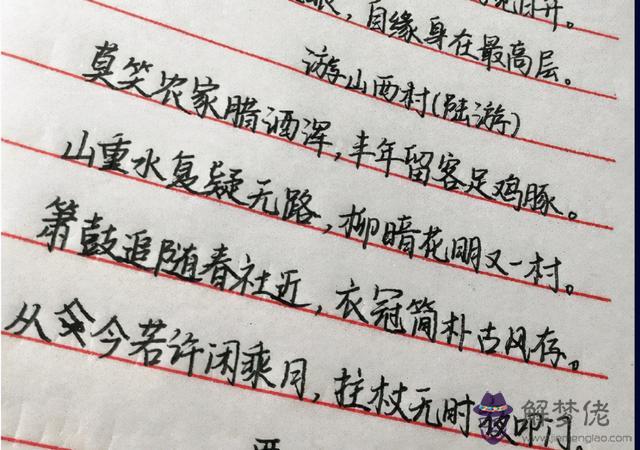 日升。
自缘身在最高层。
游山西村(陆游)
莫笑农家腊酒浑，丰年留客足鸡豚。
山重水复疑无路，柳暗花明又一村。
箫鼓追随春社近，衣冠简朴古风存。
从今若许闲乘月，拄杖无时夜叩门。
解梦佬
www.jiemenglao.com